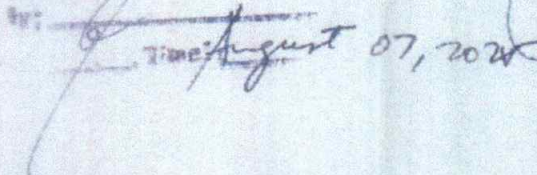 By:
Time: August 07, 202